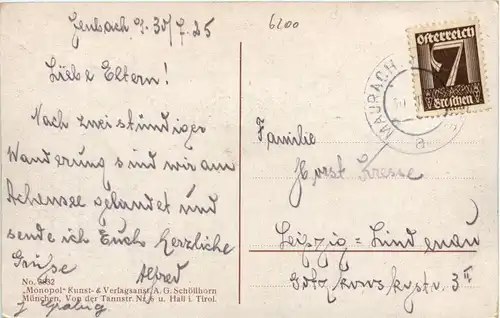 Jenbach, d. 30/7.25
6200
Liebe Eltern!
Nach zweistündiger
Wanderung sind wir am
Achensee gelandet und
sende ich Euch herzliche
Grüße Alfred
No. 3932
"Monopol" Kunst- & Verlagsanst. A. G. Schöllhorn
München, Von der Tannstr. Nr. 6 u. Hall i. Tirol.
österreich
7
Groschen
MAURACH
a
Familie
Horst Kresse
Leipzig-Lindenau
II